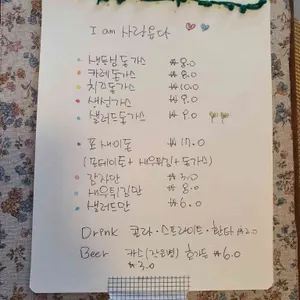 I am 사랑돕다
생등심돈가스 ₩8.0
카레돈가스 ₩8.0
치즈돈가스 ₩10.0
생선가스 ₩9.0
샐러드돈가스 ₩9.0
포세이돈 ₩17.0
(포테이토 + 새우튀김 + 돈가스)
감자만 ₩5.0
새우튀김만 ₩8.0
샐러드만 ₩6.0
Drink 콜라·스프라이트·환타 ₩2.0
Beer 카스(작은병) 호가든 ₩6.0
₩3.0